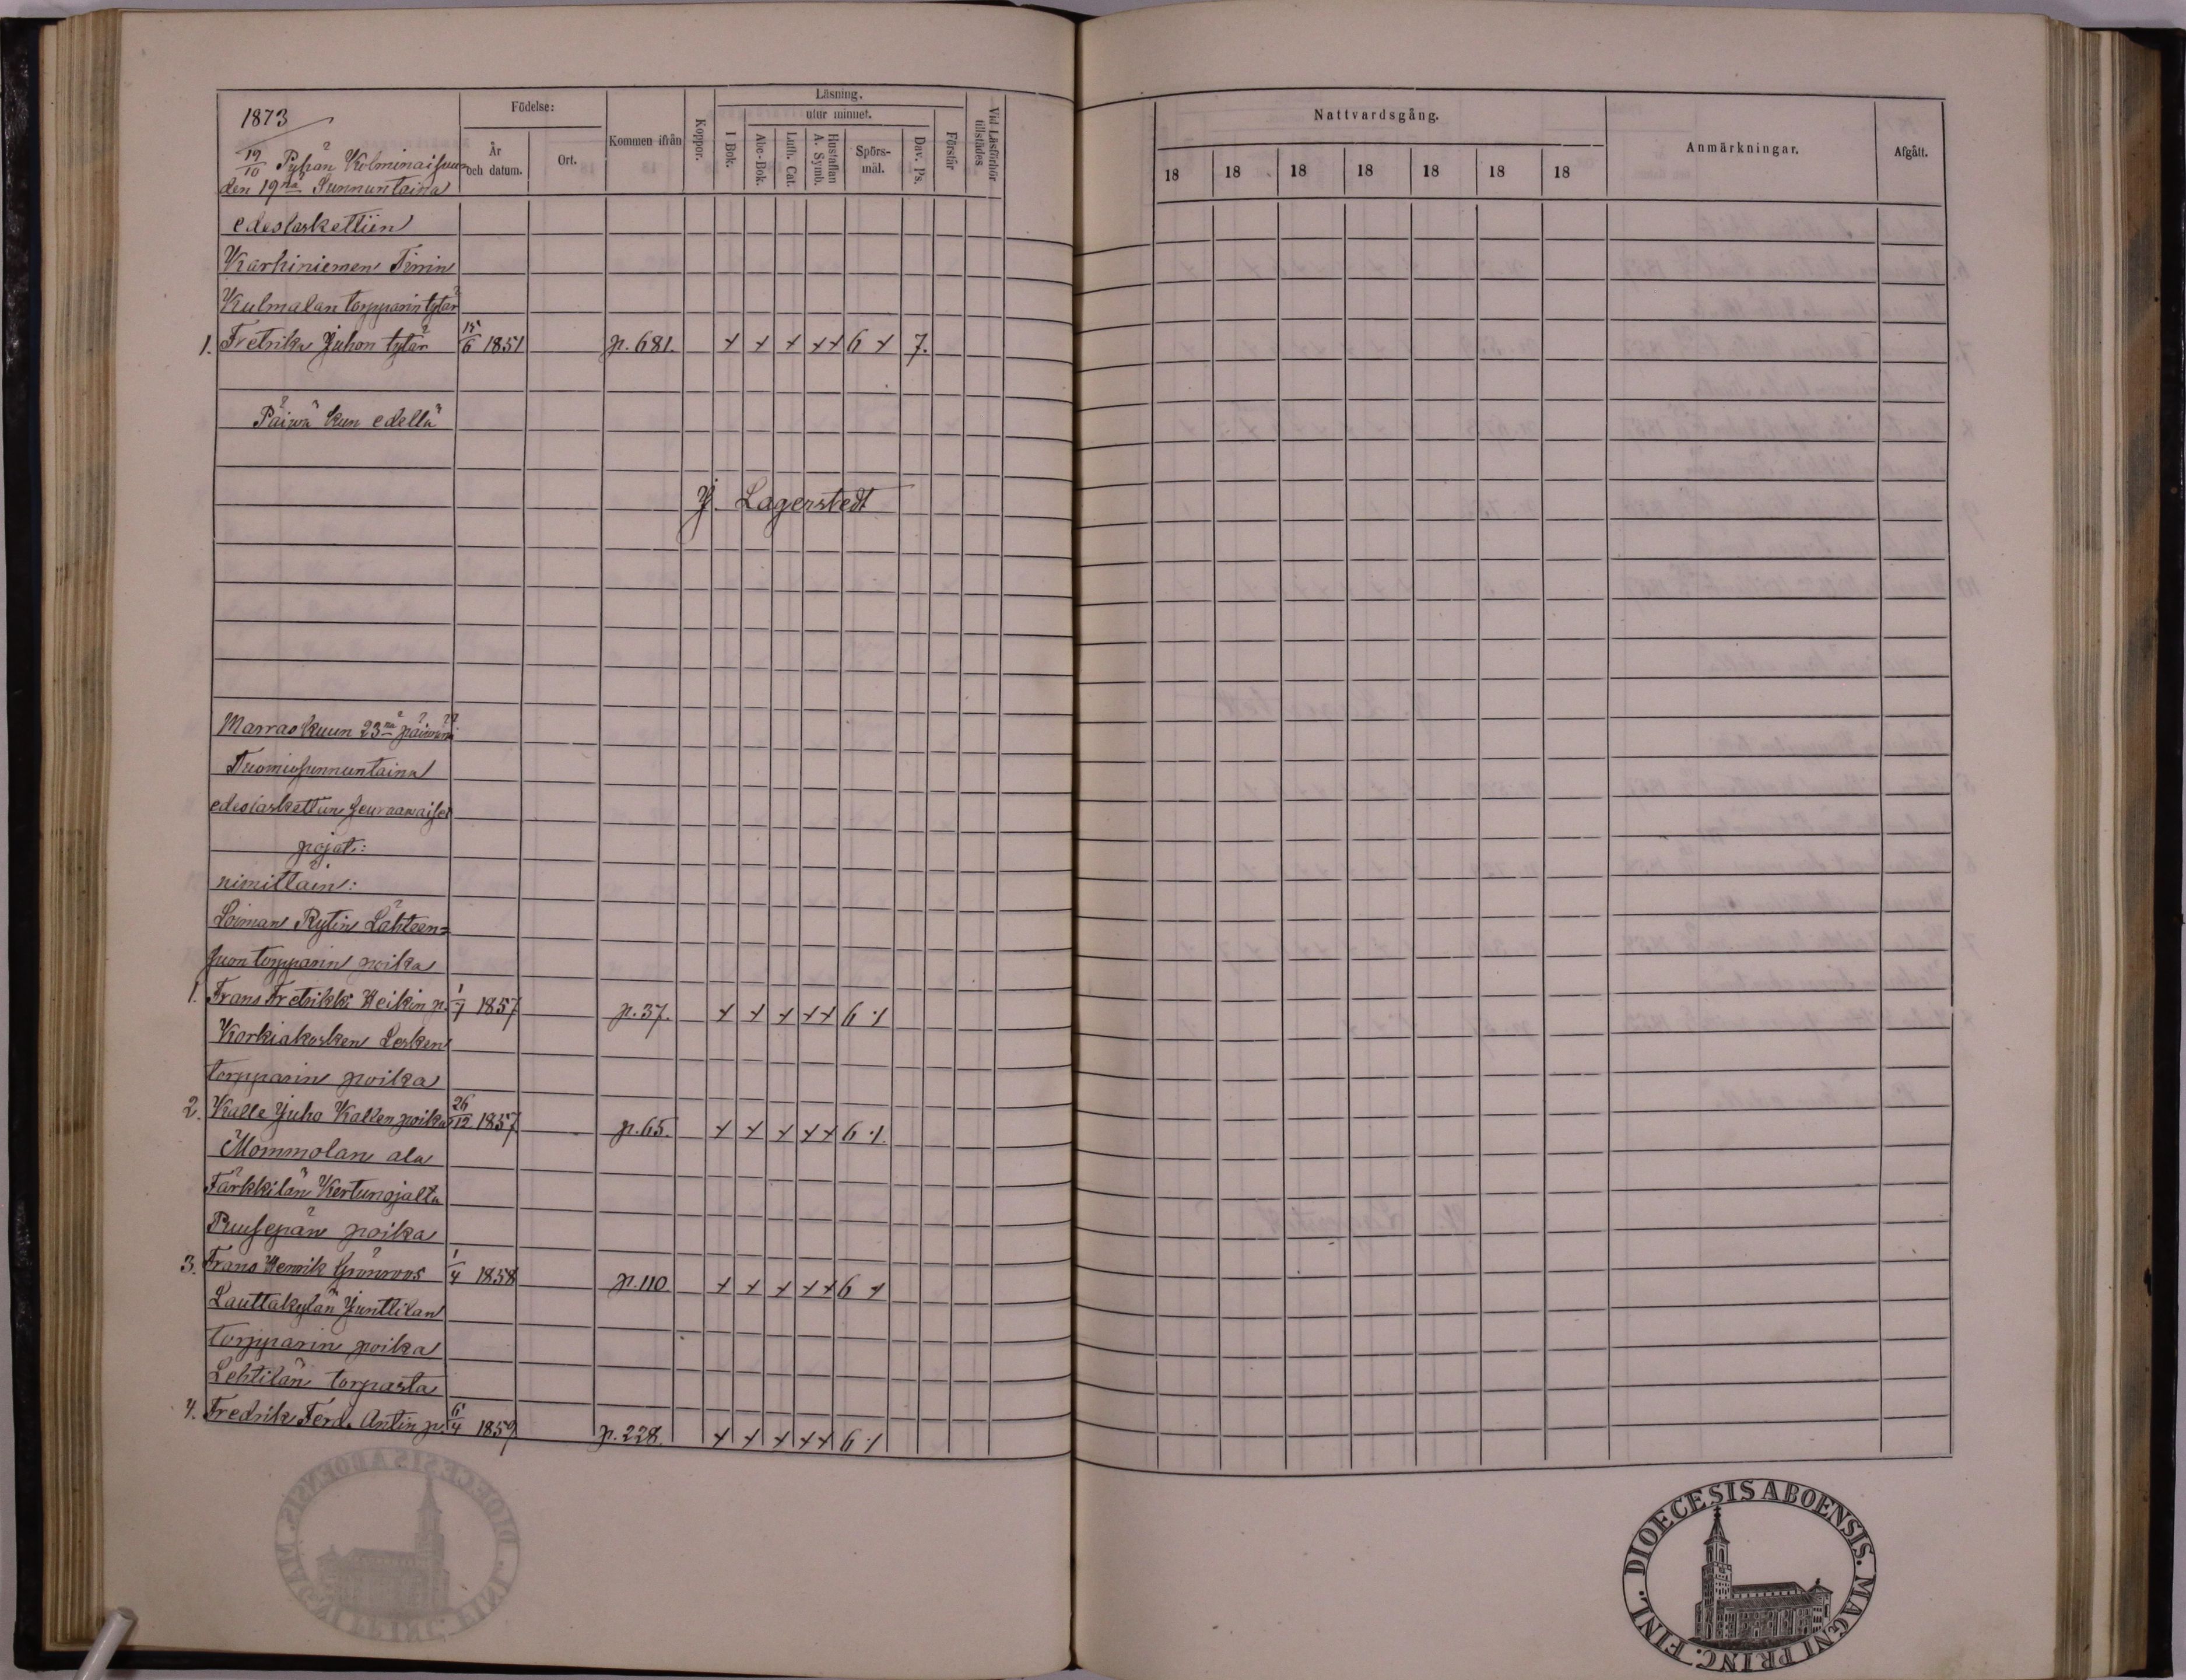 1873
Födelse:
År och datum.
Ort.
Kommen ifrån
Koppor.
Läsning.
I Bok.
utur minnet.
Abc-Bok.
Luth. Cat.
Hustaflan A. Symb.
Spörs-mål.
Dav. Ps.
Förstår
Vid Läsförhör tillstädes
19/10 Pyhän Kolminaisuu
den 19na Sunnuntaina
edeslaskettiin
Karhiniemen
Kulmalan torpparin tytär
1. Fretrika Juhon tytär 15/6 1851 p. 681. + + + ++ 6 + 7.
Päiwä kun edellä
J. Lagerstedt
Marraskuun 23na päiwänä
Tuomiosunnuntaina
edeslaskettiin seuraawaiset
pojat:
nimittäin:
Loiman Rytin Lähteen=
suon torpparin poika
1. Frans Fretrikki Heikin p. 1/7 1857 p. 37. + + + ++ 6 1
Korkiakosken Lesken
torpparin poika
2. Kalle Juho Kallenpoika 26/12 1857 p. 65. + + + ++ 6 1.
Mommolan ala
Färkkilän Kertunojalta
Puusepän poika
3. Frans Henrik Grönroos 1/4 1858 p. 110. + + + ++ 6 1
Lauttakylän Junttilan
torpparin poika
Lehtilän torpasta
4. Fredrik Ferd. Antin p. 6/4 1859 p. 228. + + + ++ 6 1
Nattvardsgång.
18 18 18 18 18 18 18
Anmärkningar.
Afgått.
DIOECESIS ABOENSIS. MAGNI PRINC. FINL.